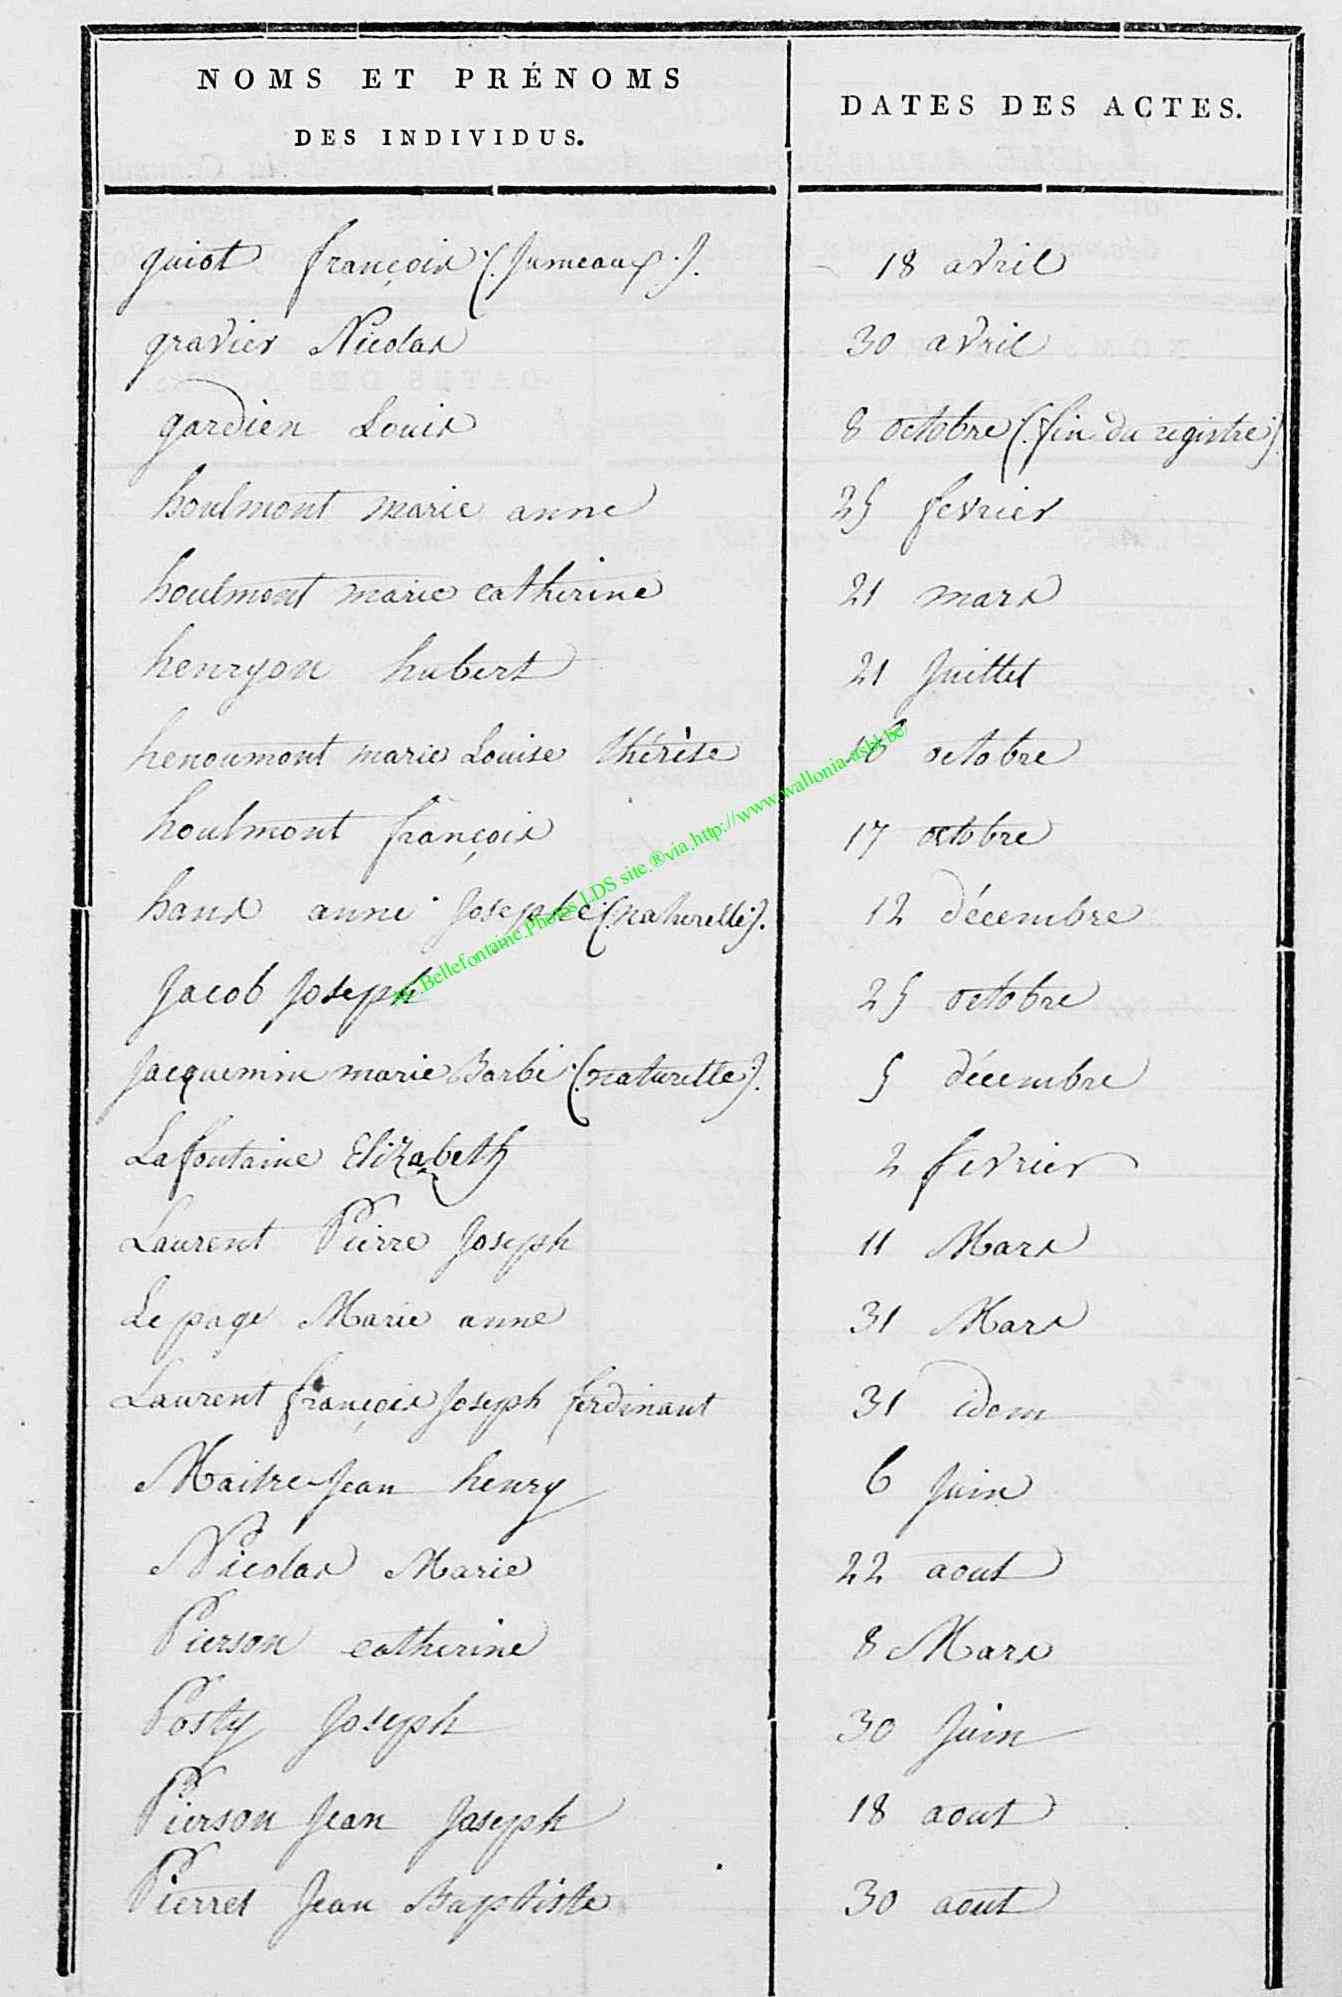 NOMS ET PRÉNOMS
DES INDIVIDUS.
DATES DES ACTES.
guiot françois (jumeaux). 18 avril
gravier Nicolas 30 avril
gardien Louis 8 octobre (fin du registre)
houlmont marie anne 25 fevrier
houlmont marie catherine 21 mars
henryon hubert 21 Juillet
henoumont marie Louise thérèse octobre
houlmont françois 17 octobre
hans anne Josephe (naturelle). 12 décembre
Jacob Joseph 25 octobre
Jacquemin marie Barbe (naturelle). 5 décembre
Lafontaine Elizabeth 2 fevrier
Laurent Pierre Joseph 11 Mars
Le page Marie anne 31 Mars
Laurent françois Joseph ferdinant 31 idem
Maitre-Jean henry 6 Juin
Nicolas Marie 22 aout
Pierson catherine 8 Mars
Posty Joseph 30 Juin
Pierson Jean Joseph 18 aout
Pierret Jean Baptiste 30 aout
Bellefontaine.Photos LDS site.®via.http://www.wallonia-asbl.be/